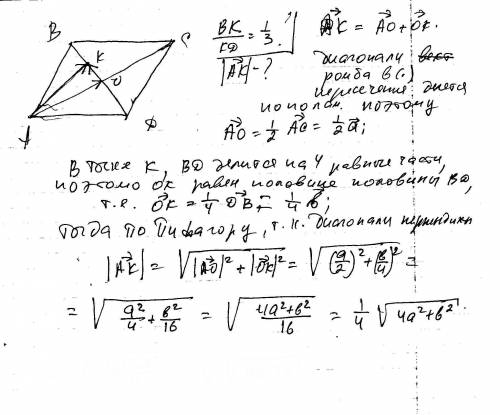 B C K O A D
BK/KD = 1/3
|AK| - ?
AK = AO + OK.
диагонали
ромба в (.)
пересечения делятся
пополам. поэтому
AO = 1/2 AC = 1/2 a;
В точке K, BD делится на 4 равные части,
поэтому OK равен половине половины BD,
т.е. OK = 1/4 DB = 1/4 b;
Тогда по Пифагору, т.к. диагонали перпендик
|AK| = √(|AO|² + |OK|²) = √((a/2)² + (b/4)²) =
= √(a²/4 + b²/16) = √((4a² + b²)/16) = 1/4 √(4a² + b²)